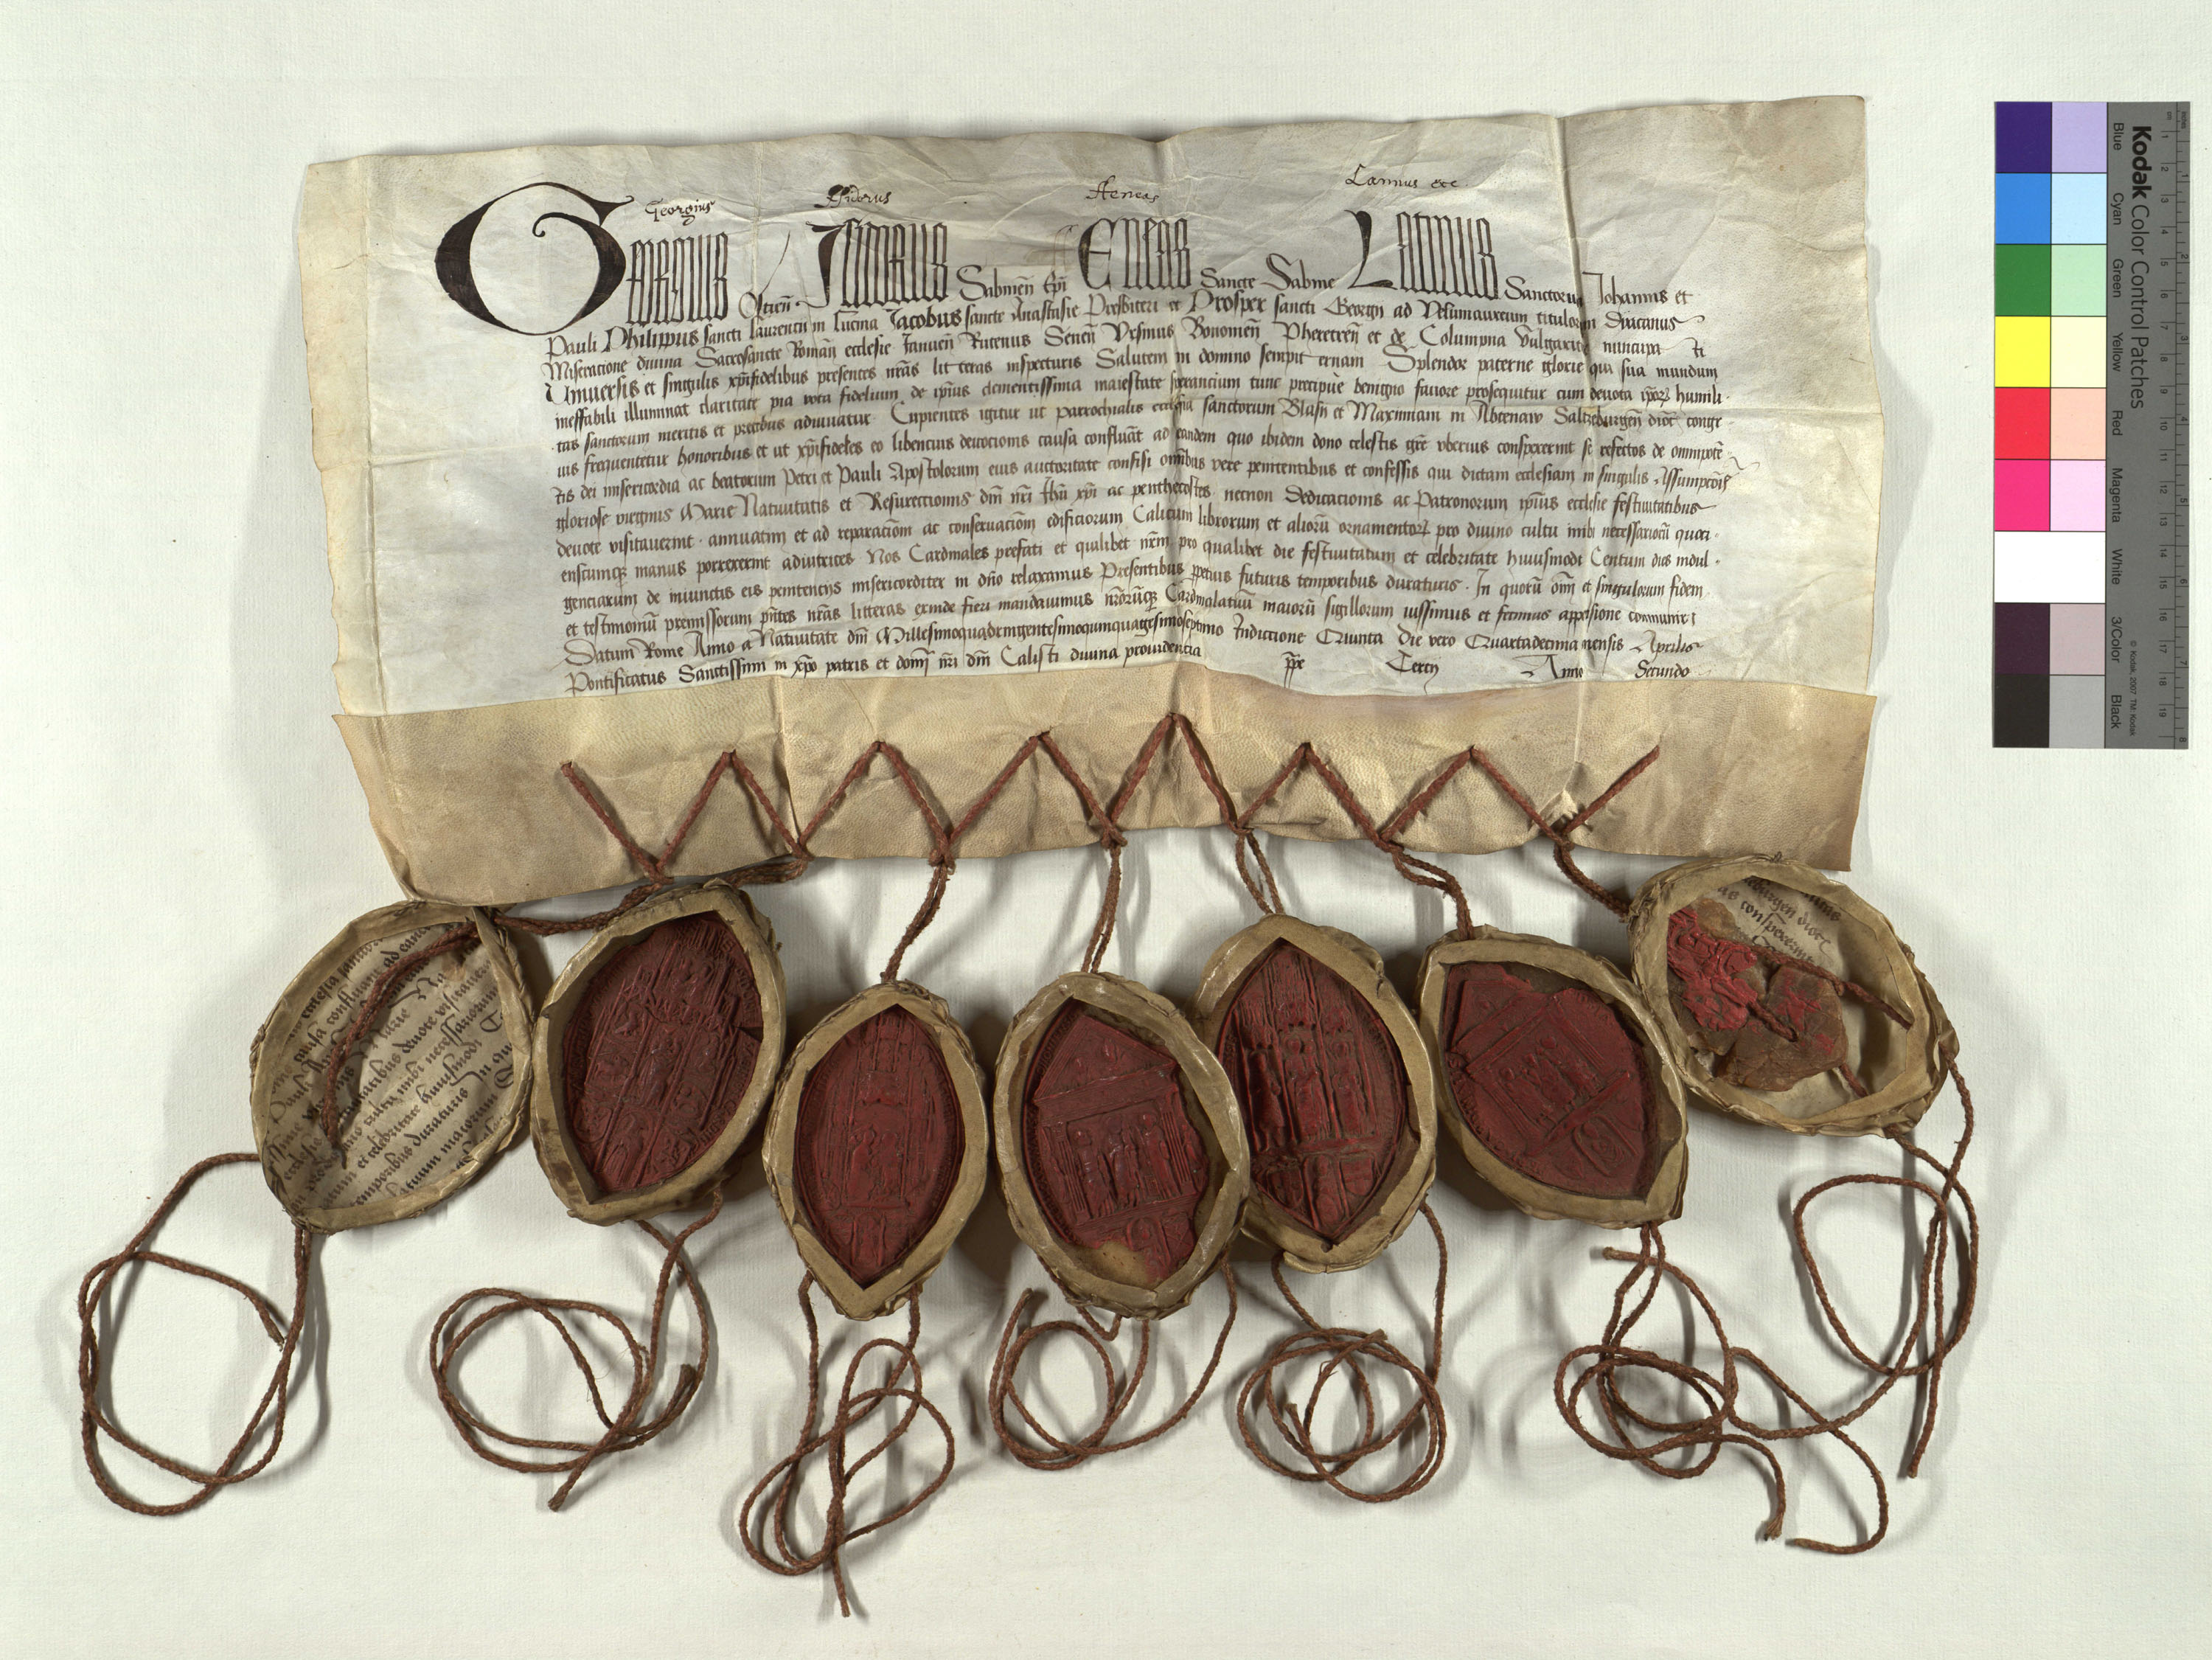 Georgius Isidorus Aeneas Latinus etc.
Georgius Ostien̄ Isidorus Sabinen̄ Ep̄i Eneas Sancte Sabine Latinus Sanctorum Johannis et
Pauli Philippus sancti laurentii in lucina Jacobus sancte Anastasie Presbiteri et Prosper sancti Georgii ad Velumaureum titulorum Diacanus
Miseratione divina Sacrosancte Roman̄ ecclesie Januen̄ Rutenus Senen̄ Ursinus Bononien̄ Pheretren̄ et de Columpna Vulgariter nuncupa ti
Universis et singulis xp̄ifidelibus presentes nr̄as lit teras inspecturis Salutem in domino sempit ernam Splendor paterne glorie qui sua mundum
ineffabili illuminat claritate pia vota fidelium de ip̄ius clementissima maiestate sperancium tunc precipue benigno favore prosequitur cum devota ip̄oꝝ humili
tas sanctorum meritis et precibus adiuvatur Cupientes igitur ut parrochialis ecclesia sanctorum Blasii et Maximiani in Abtenaw Saltzeburgen̄ dioc̄ congr
uis frequentetur honoribus et ut xp̄ifideles eo libencius devocionis causa confluāt ad eandem quo ibidem dono celestis gr̄e uberius conspexerint se refectos de omnipotē
tis dei misericordia ac beatorum Petri et Pauli Apostolorum eius auctoritate confisi omnibus vere penitentibus et confessis qui dictam ecclesiam in singulis Assumpcōis
gloriose virginis Marie Nativitatis et Resurectionis dn̄i nr̄i Ihū xp̄i ac penthecostes necnon Dedicationis ac Patronorum ip̄ius ecclesie festivitatibus
devote visitaverint annuatim et ad reparaciōm ac conservaciōm edificiorum Calicum librorum et aliorū ornamentoꝝ pro divino cultu inibi necessariorū quoci
enscumqꝫ manus porrexerint adiutrices Nos Cardinales prefati et quilibet nr̄m pro qualibet die festivitatum et celebritate huiusmodi Centum dies indul
genciarum de iniunctis eis penitenciis misericorditer in dn̄o relaxamus Presentibus ꝑpetuis futuris temporibus duraturis In quorū om̄i et singulorum fidem
et testimoniū premissorum pn̄tes nr̄as litteras exinde fieri mandavimus nr̄orūqꝫ Cardinalatuū maiorū sigillorum iussimus et fecimus appēsione communiri
Datum Rome Anno a Nativitate dn̄i Millesimoquadringentesimoquinquagesimoseptimo Indiccione Quinta Die vero Quartadecima mensis Aprilis
Pontificatus Sanctissimi in xp̄o patris et domī nr̄i dn̄i Calisti divina providencia pp̄e Tercii Anno Secundo
ecclesia
causa confluant ad ean
Pauli
Marie Na
devote visitaverint
cultu inibi necessariorum
et celebritate huiusmodi
temporibus duraturis In
maiorum
burgen dioc̄
as conspexerint
Kodak Color Control Patches
Blue Cyan Green Yellow Red Magenta White 3/Color Black
© Kodak, 2007 TM: Kodak
inches 1 2 3 4 5 6 7 8
cm 1 2 3 4 5 6 7 8 9 10 11 12 13 14 15 16 17 18 19